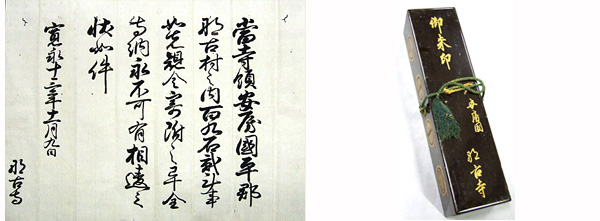 當寺領安房國平郡
那古村之内百九石貳斗事
如先規令寄附之畢全
寺納永不可有相違之
状如件
寛永十三年十一月九日
那古寺
御朱印
安房国
那古寺